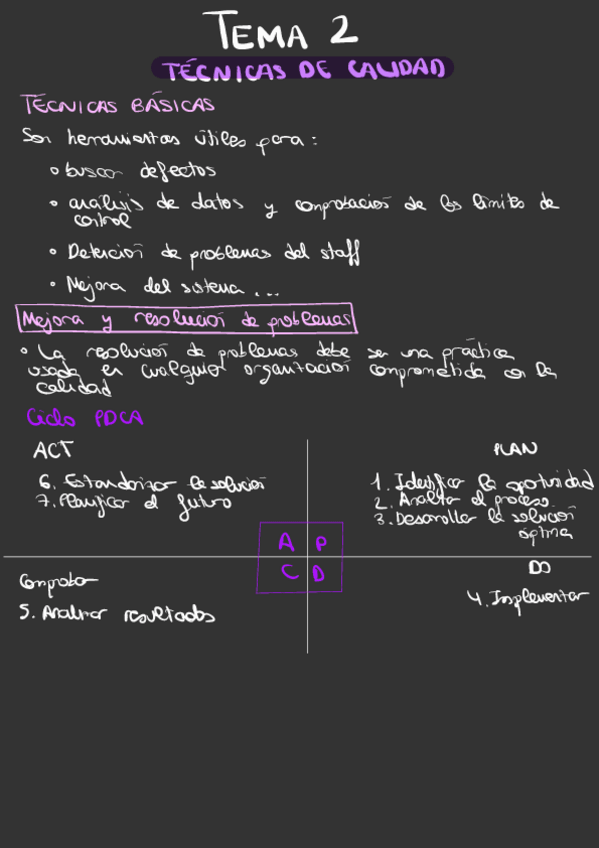 TEMA 2
TÉCNICAS DE CALIDAD
TÉCNICAS BÁSICAS
Son herramientas útiles para:
• buscar defectos
• análisis de datos y comprobación de los límites de
control
• Detención de problemas del staff
• Mejora del sistema ...
Mejora y resolución de problemas
• La resolución de problemas debe ser una práctica
usada en cualquier organización comprometida con la
calidad
Ciclo PDCA
ACT
6. Estandarizar la solución
7. Planificar el futuro
PLAN
1. Identificar la oportunidad
2. Analizar el proceso
3. Desarrollar la solución
óptima
A P
C D
Comprobar
5. Analizar resultados
DO
4. Implementar